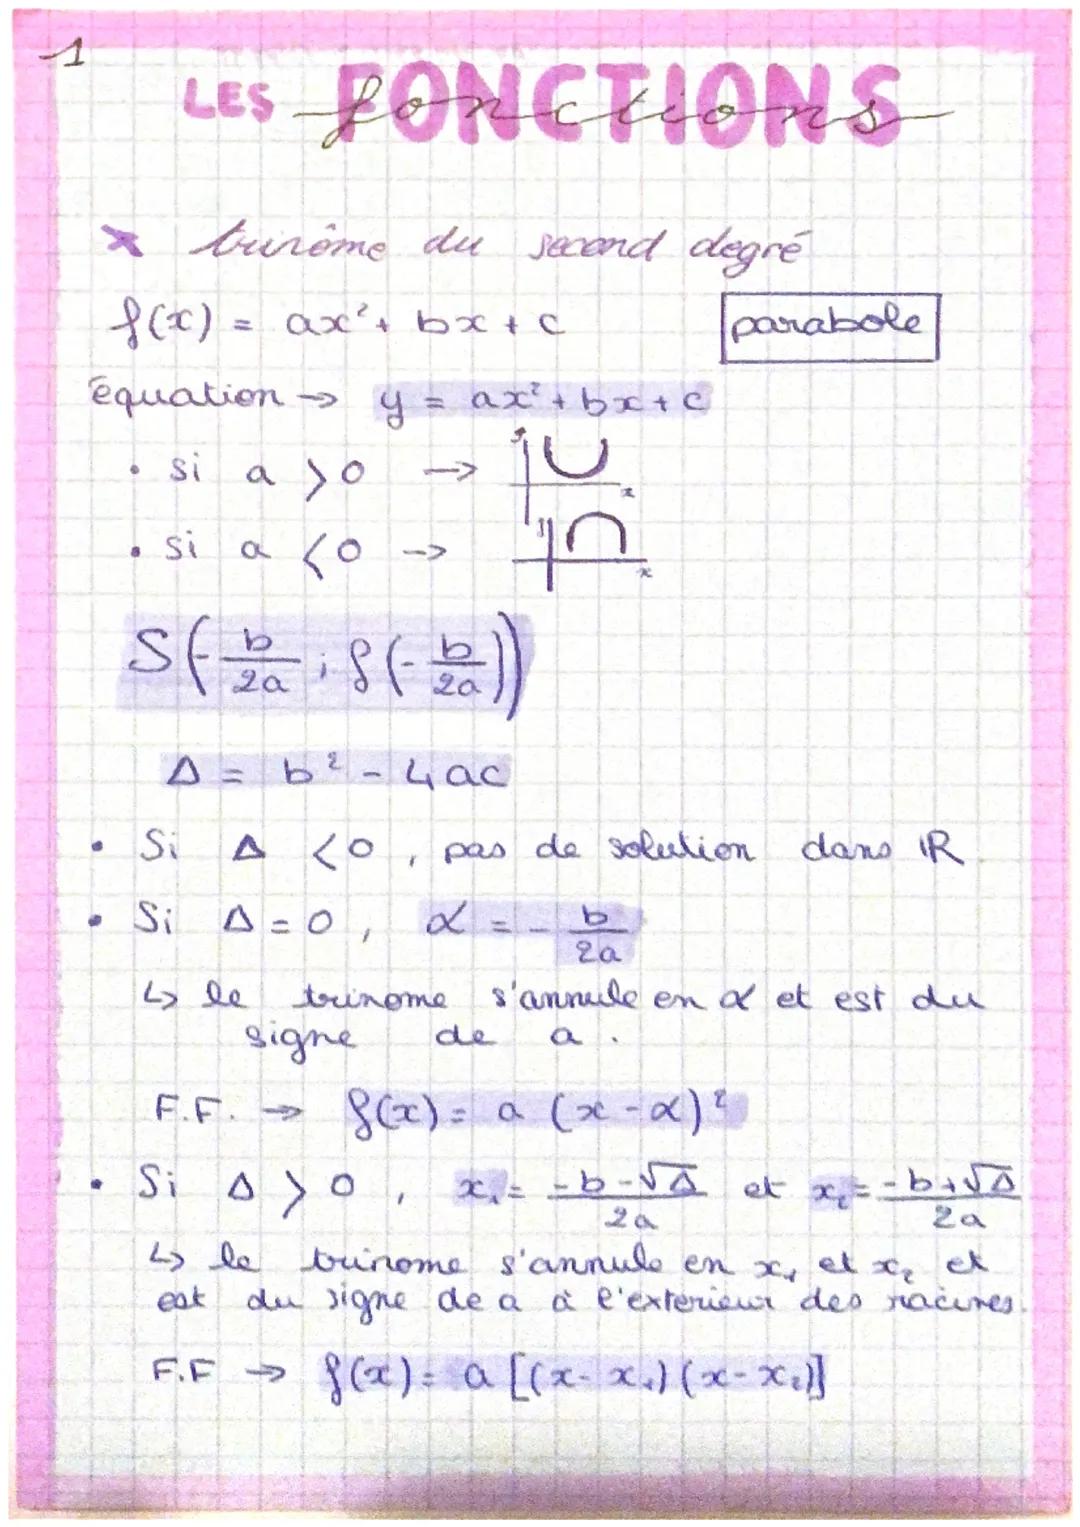 1
LES FONCTIONS
fonctions
* trinôme du second degré
f(x) = ax² + bx + c
parabole
équation → y = ax² + bx + c
• si a > 0 → y x
• si a < 0 → y x
S(-b/2a ; f(-b/2a))
Δ = b² - 4ac
• Si Δ < 0, pas de solution dans ℝ
• Si Δ = 0, α = -b/2a
↳ le trinome s'annule en α et est du
signe de a.
F.F. → f(x) = a (x - α)²
• Si Δ > 0, x₁ = -b-√Δ/2a et x₂ = -b+√Δ/2a
↳ le trinome s'annule en x₁ et x₂ et
est du signe de a à l'exterieur des racines.
F.F → f(x) = a [(x - x₁) (x - x₂)]